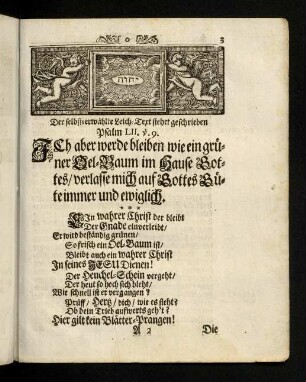 o
3
יהוה
Der selbst-erwählte Leich-Text stehet geschrieben
Psalm LII, v. 9.
ICh aber werde bleiben wie ein grü-
ner Oel-Baum im Hause Got-
tes/ verlasse mich auf Gottes Gü-
te immer und ewiglich.
* * *
EIn wahrer Christ der bleibt
Der Gnade einverleibt/
Er wird beständig grünen/
So frisch ein Oel-Baum ist/
Bleibt auch ein wahrer Christ
In seines JESU Dienen!
Der Heuchel-Schein vergeht/
Der heut so hoch sich bleht/
Wie schnell ist er vergangen?
Prüff/ Hertz/ dich/ wie es steht?
Ob dein Trieb aufwerts geh't?
Hier gilt kein Blätter-Prangen!
A 2
Die